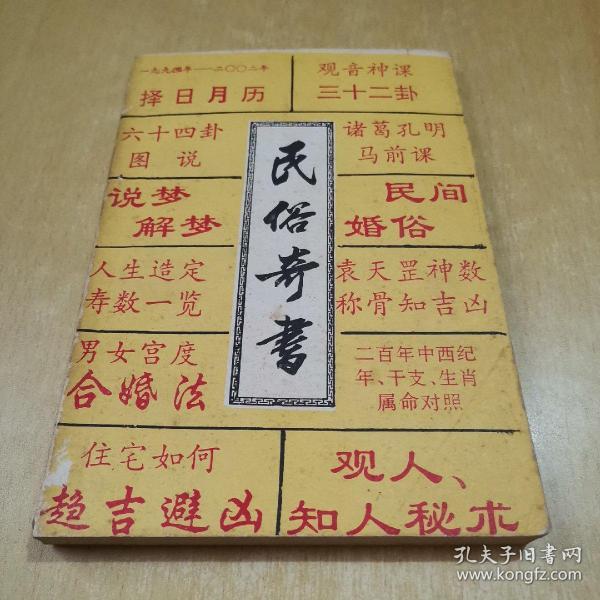 一九九四年——二〇〇二年
择日月历
观音神课
三十二卦
六十四卦
图说
诸葛孔明
马前课
民俗奇书
说梦
解梦
民间
婚俗
人生造定
寿数一览
袁天罡神数
称骨知吉凶
男女宫度
合婚法
二百年中西纪
年、干支、生肖
属命对照
住宅如何
趋吉避凶
观人、
知人秘术
孔夫子旧书网
www.kongfz.com